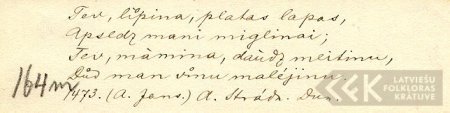 Tev, lìpina, platas lapas,
Apsedz mani miglinai;
Tev, māmina, daudz meitinu,
Dūd man vīnu malējinu.
164
1473. (A. Jans.) A. Strādz. Dun.
LATVIEŠU
FOLKLORAS
KRĀTUVE